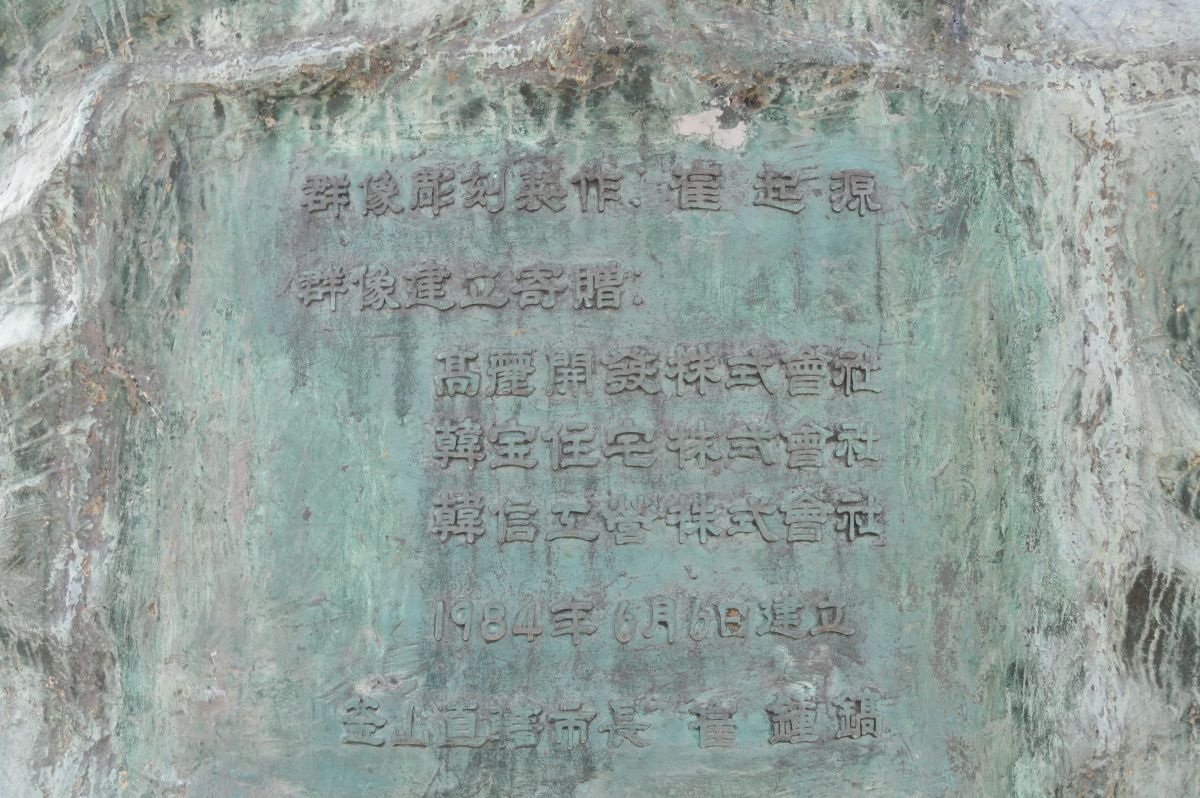 群像彫刻製作: 崔起源
群像建立寄贈:
高麗開發株式會社
韓宝住宅株式會社
韓信工營株式會社
1984年6月6日建立
釜山直轄市長 崔鍾鎬